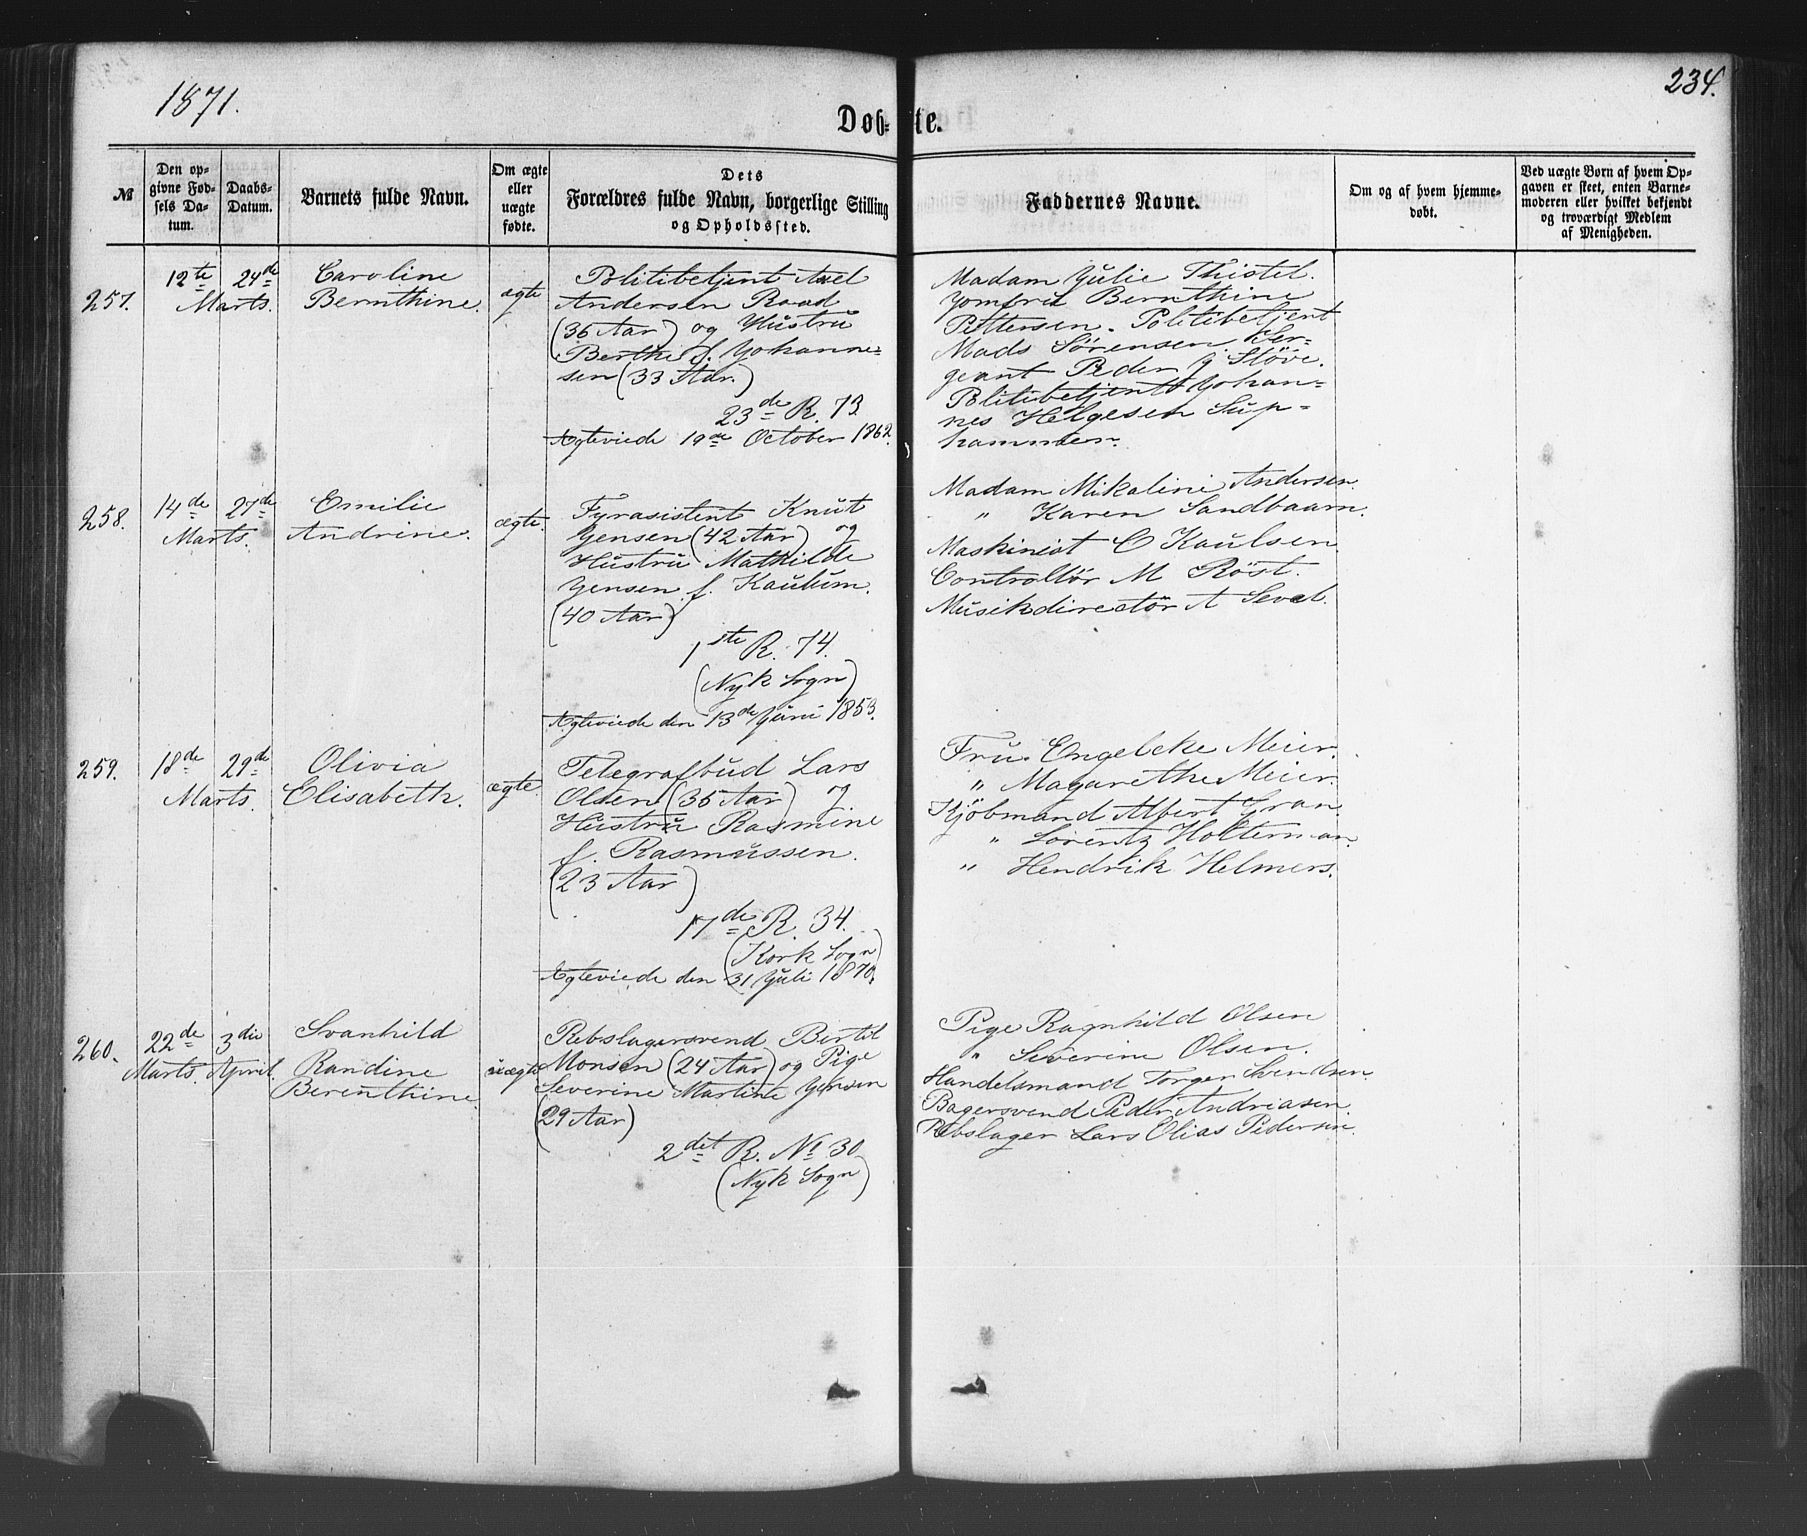 1871.
234.
Døb-
te.
№
Den op-
givne Fød-
sels Da-
tum.
Daabs-
Datum.
Barnets fulde Navn.
Om ægte
eller
uægte
fødte.
Dets
Forældres fulde Navn, borgerlige Stilling
og Opholdssted.
Faddernes Navne.
Om og af hvem hjemme-
døbt.
Ved uægte Børn af hvem Op-
gaven er skeet, enten Barne-
moderen eller hvilket bekjendt
og troværdigt Medlem
af Menigheden.
257.
12te 24de
Marts.
Caroline
Bernthine.
ægte
Politibetjent Axel
Andersen Raad
(36 Aar) og Hustru
Berthe f. Johanne-
sen (33 Aar.)
23de R. 73.
Ægteviede 19de October 1862.
Madam Julie Thistel.
Jomfru Bernthine
Pettersen. Politibetjent
Mads Sörensen. Ser-
geant Peder J Stöve.
Politibetjent Johan-
nes Helgesen Sup-
hammer.
258.
14de 27de
Marts.
Emilie
Andrine.
ægte.
Fyrasistent Knut
Jensen (42 Aar) og
Hustru Mathilde
Jensen f. Kaulum.
(40 Aar)
1ste R. 74.
(Nyk Sogn)
Ægteviede den 13de Juni 1853.
Madam Mikaline Andersen.
" Karen Sandbaarn.
Maskinist C Kaulsen.
Controllör M Röst.
Musikdirectör A Sevel.
259.
18de 29de
Marts.
Olivia
Elisabeth.
ægte.
Telegrafbud Lars
Olsen (35 Aar) og
Hustru Rasmine
f. Rasmussen.
(23 Aar)
17de R. 34.
(Kork Sogn)
Ægteviede den 31 Juli 1870.
Fru Engelcke Meier.
" Magarethe Meier.
Kjöbmand Albert Gran.
" Lorentz Holterman.
" Hendrik Helmers.
260.
22de 3die
Marts. April.
Svanhild
Randine
Berenthine.
uægte
Rebslagersvend Bertil
Monsen (24 Aar) og Pige
Severine Martine Jensen
(29 Aar)
2det R. № 30
(Nyk Sogn)
Pige Ragnhild Olsen
" Severine Olsen.
Handelsmand Torger Svendsen.
Bagersvend Peder Andriasen.
Rebslager Lars Olias Pedersen.